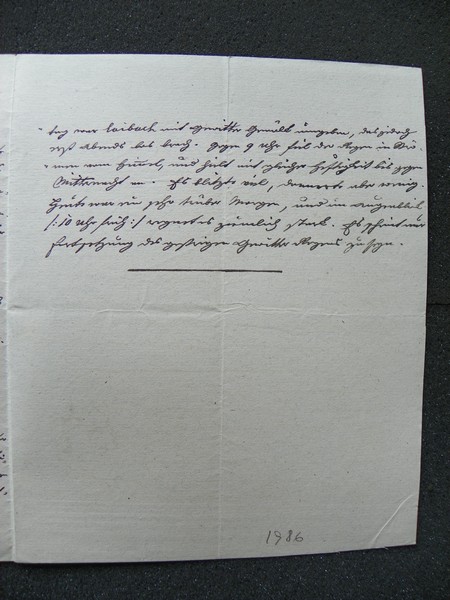 tag war Laibach mit Gewitter Gewölk umgeben, das jedoch
erst Abends los brach. Gegen 9 Uhr fiel der Regen in Strö-
men vom Himmel, und hielt mit gleicher Heftigkeit bis gegen
Mitternacht an. Es blitzte viel, donnerte aber wenig.
Heute war ein sehr trüber Morgen, und im Augenblick
/:10 Uhr früh:/ regnet es ziemlich stark. Es scheint nur
Fortsetzung des gestrigen Gewitter Regens zu seyn.
1986